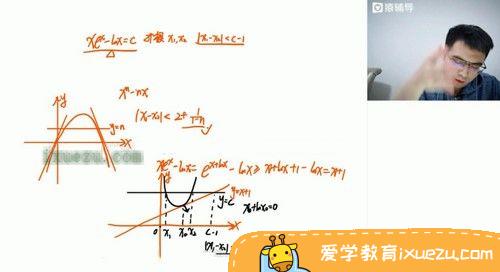 猿辅导
xe^x-lnx=c 2个根 x₁,x₂ |x₁-x₂|<c-1
y
x^n-nx
y=n
x
|x₁-x₂|<2+
ixuezu.com
xe^x-lnx=e^{x+lnx}-lnx≥x+lnx+1-lnx=x+1
y
y=x+1
y=c
x₀+lnx₀=0
0 x₁ x₀ x₂ c-1 x
|x₁-x₂|
爱学教育ixuezu.com